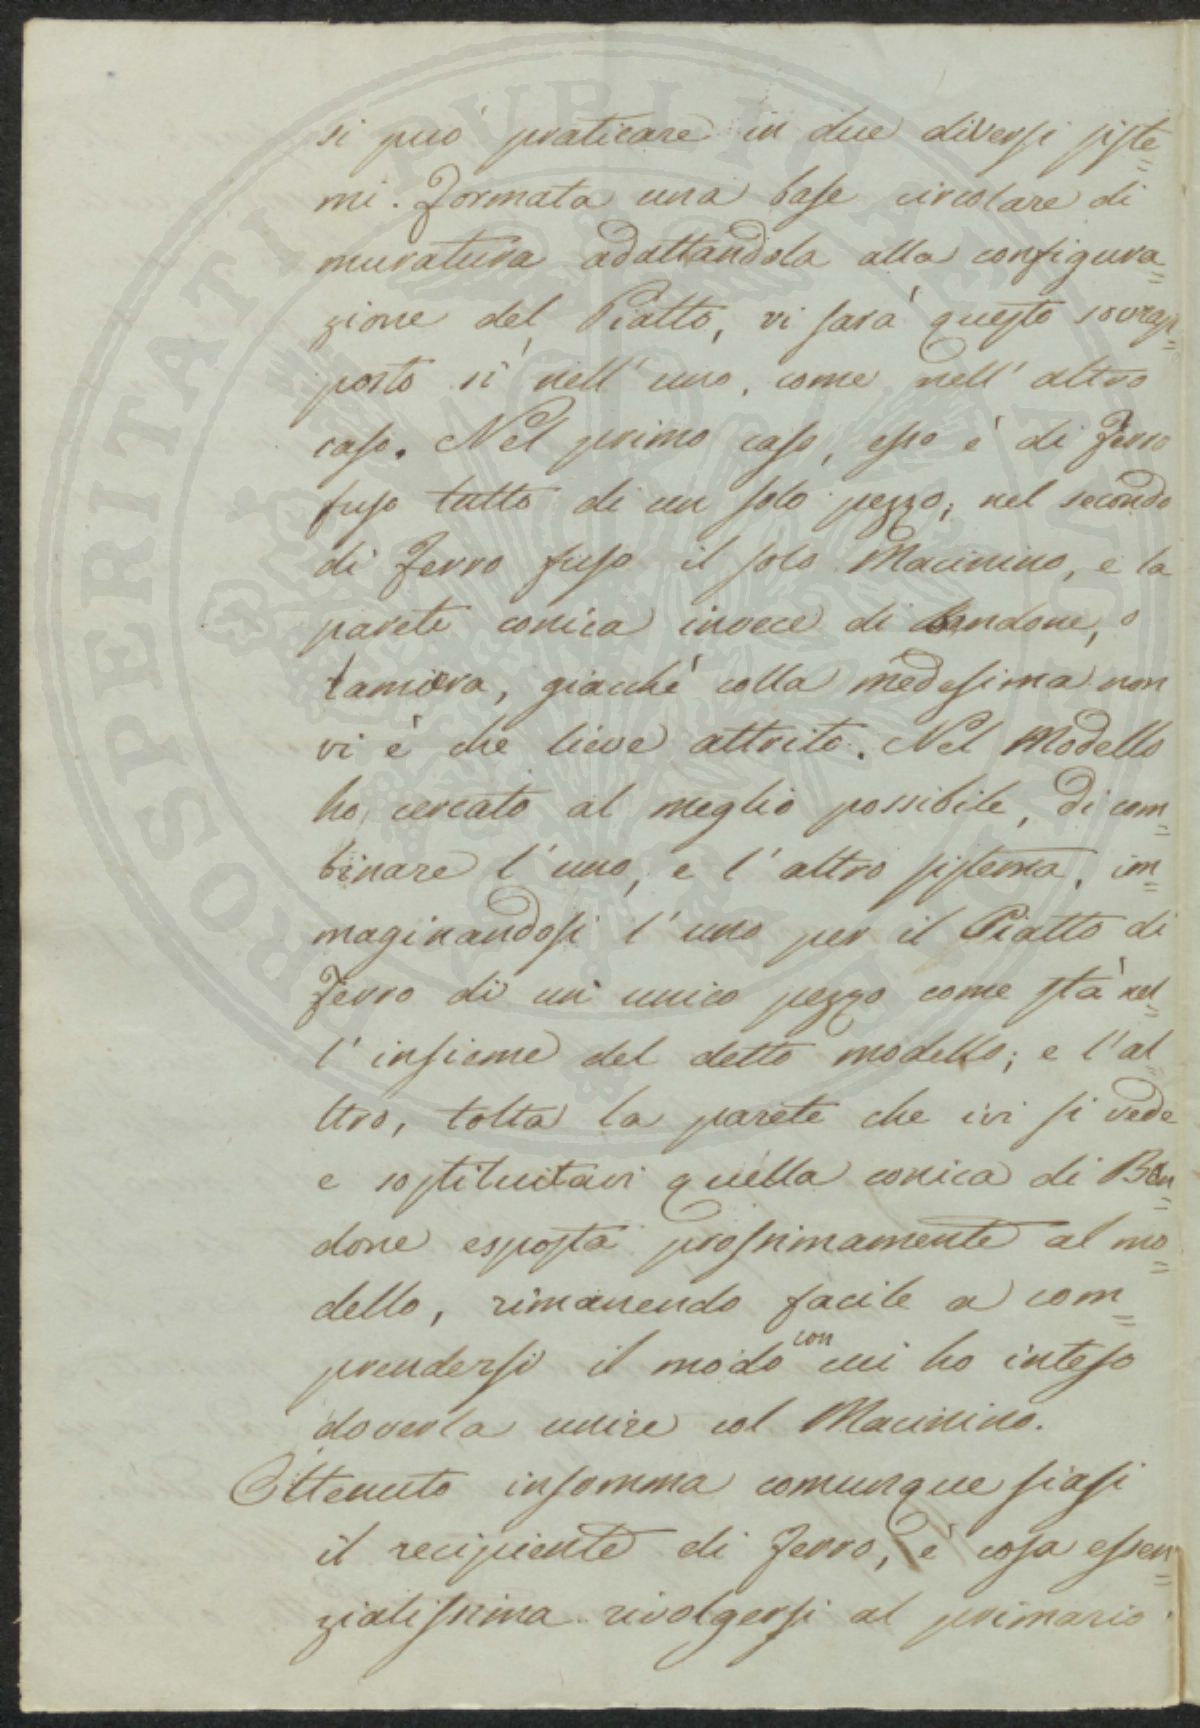 si può praticare in due diversi siste=
mi. Formata una base circolare di
muratura adattandola alla configura=
zione del Piatto, vi sarà questo sovrap=
posto sì nell' uno, come nell' altro
caso. Nel primo caso, esso è di Ferro
fuso tutto di un solo pezzo; nel secondo
di Ferro fuso il solo Macinino, e la
parete conica invece di Bandone, o
lamiera, giacchè colla medesima non
vi è che lieve attrito. Nel Modello
ho cercato al meglio possibile, di com=
binare l' uno, e l' altro sistema, im=
maginandosi l' uno per il Piatto di
Ferro di un unico pezzo come stà nel=
l' insieme del detto modello; e l' al=
ltro, tolta la parete che ivi si vede
e sostituitavi quella conica di Ban=
done esposta prossimamente al mo=
dello, rimanendo facile a com=
prendersi il modo con cui ho inteso
doverla unire col Macinino.
Ottenuto insomma comunque siasi
il recipiente di Ferro, è cosa essen=
zialissima rivolgersi al primario
PROSPERITATI PVBLICAE AVGENDAE